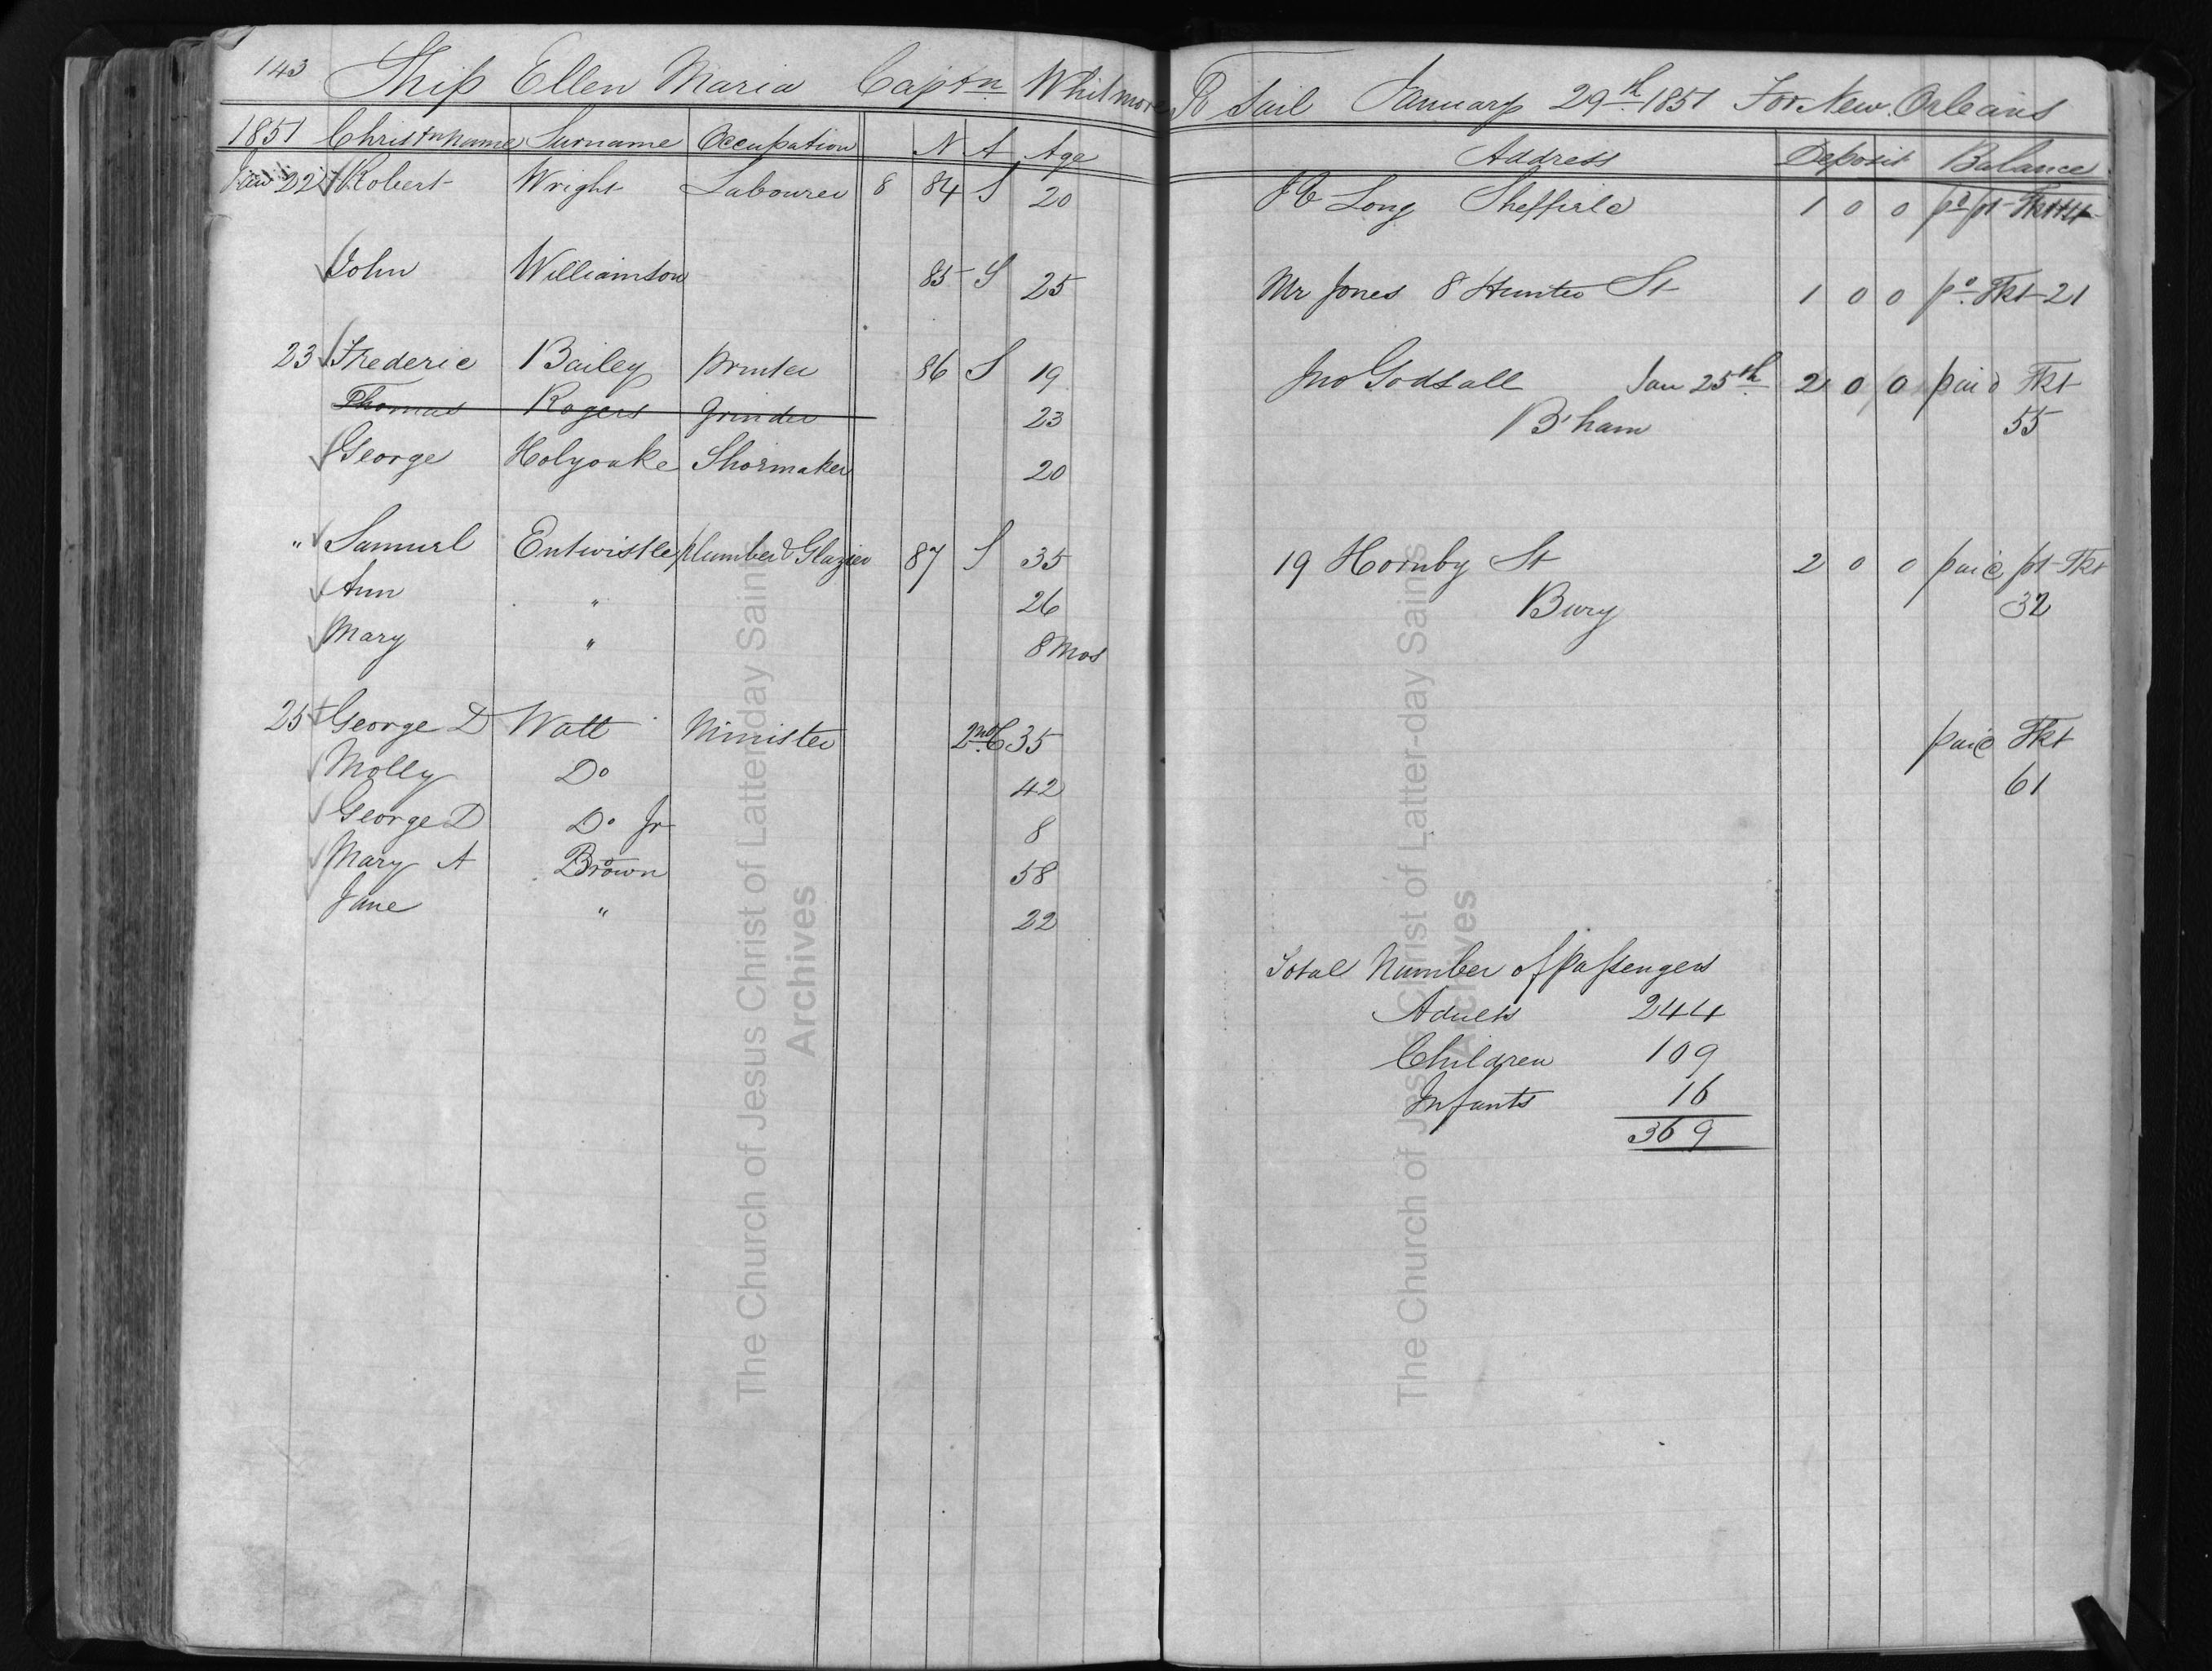 143 Ship Ellen Maria Captn Whitmore To Sail January 29th 1851 For New Orleans
1851 Christn Name Surname Occupation N A Age Address Deposit Balance
Jan 22 Robert Wright Labourer 8 84 S 20 J C Long Sheffield 1 0 0 pd pt Tkt
John Williamson 85 S 25 Mr Jones 8 Hunter St 1 0 0 pd Tkt 21
23 Frederic Bailey printer 86 S 19 Jno Godsall Jan 25th 2 0 0 paid Tkt
Thomas Rogers Grinder 23 B'ham 55
George Holyoake Shoemaker 20
" Samuel Entwistle plumber & Glazier 87 S 35 19 Hornby St 2 0 0 paid pt Tkt
Ann " 26 Bury 32
Mary " 8 Mos
25 George D Watt Minister 2nd C 35 paid Tkt
Molly Do 42 61
George D Do Jr 8
Mary A Brown 58
Jane " 22
Total Number of passengers
Adults 244
Children 109
Infants 16
369
The Church of Jesus Christ of Latter-day Saints
Archives
The Church of Jesus Christ of Latter-day Saints
Archives